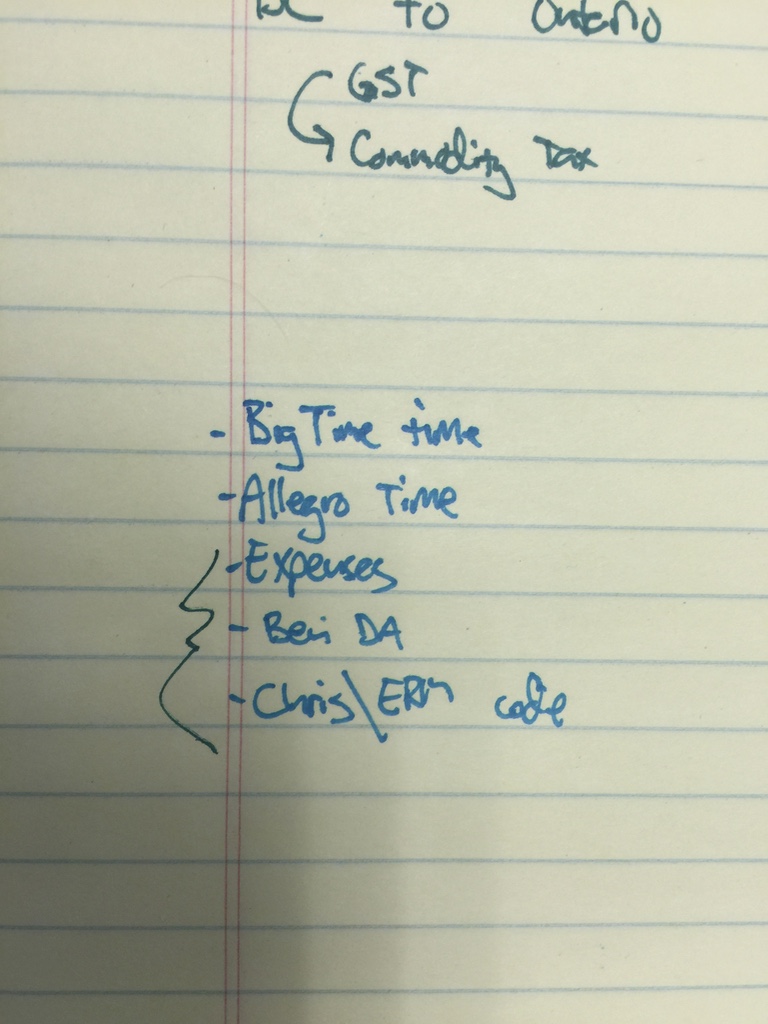 BC to Ontario
GST
Commodity Tax
- BigTime time
- Allegro Time
- Expenses
- DA
- Chris\ code